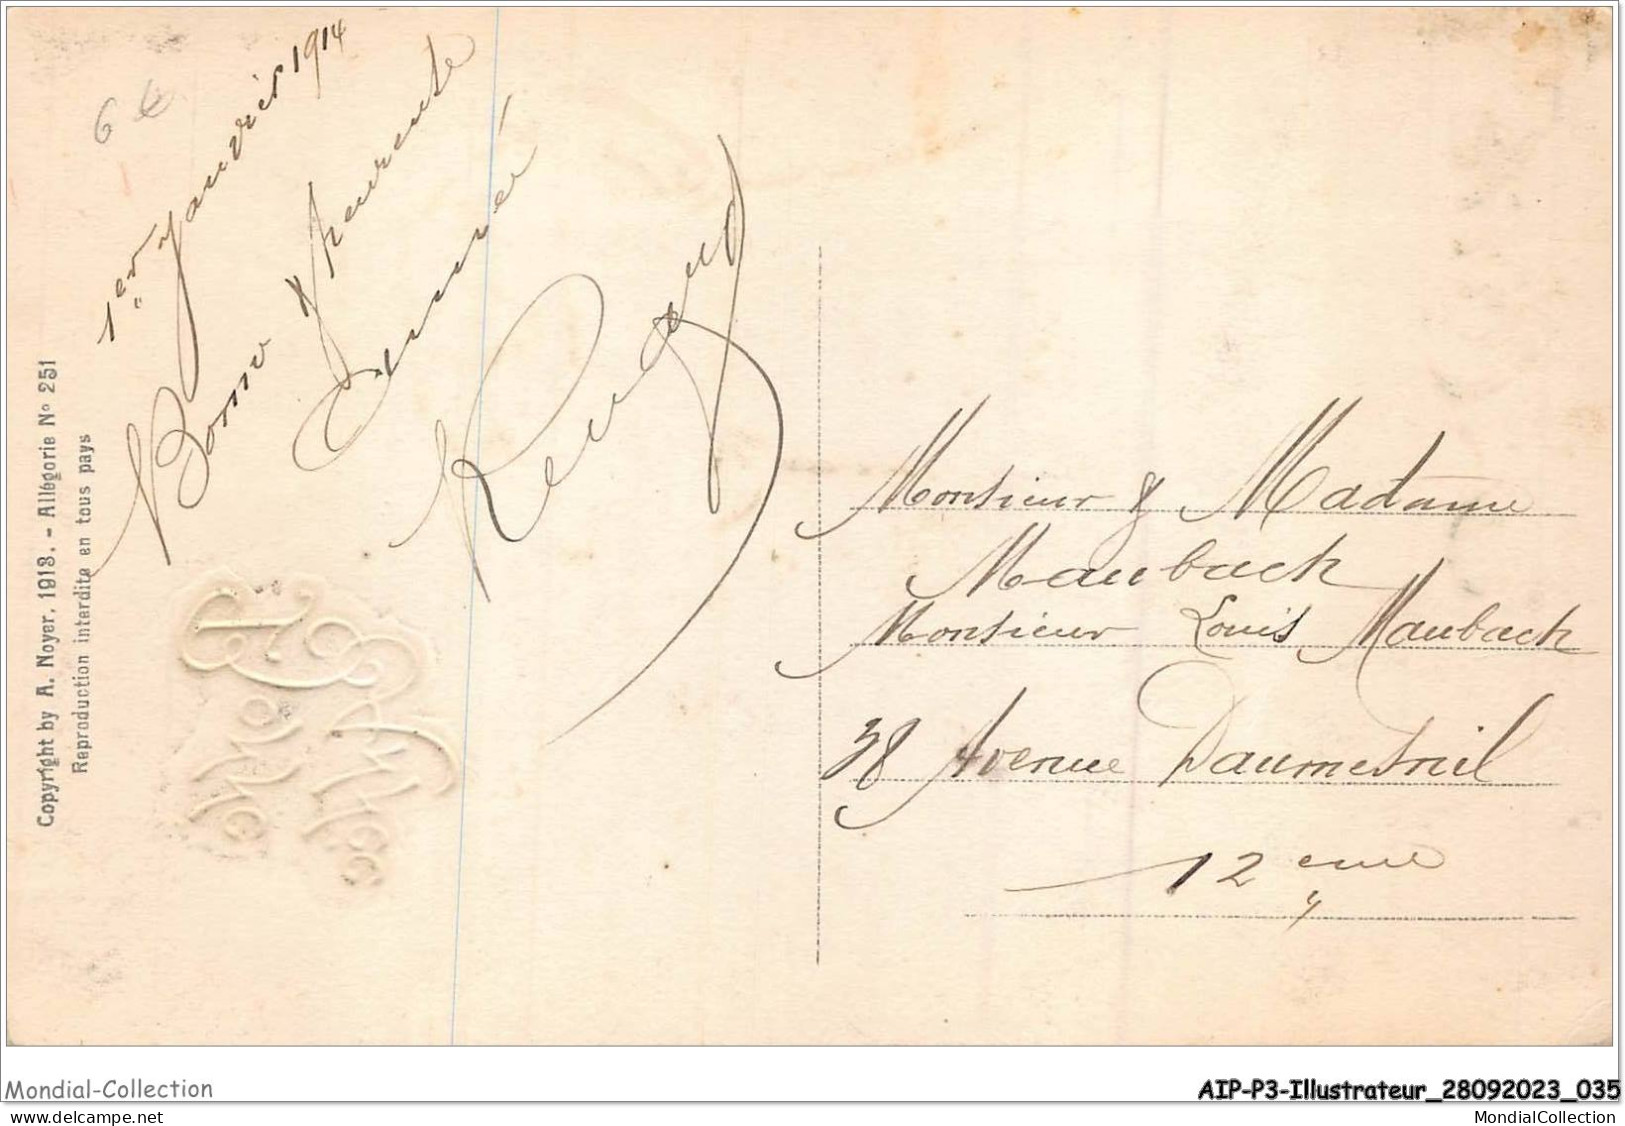 6 €
1er Janvier 1914
Bonne & heureuse
Année
Copyright by A. Noyer, 1913. - Allégorie No 251
Reproduction interdite en tous pays
Monsieur & Madame
Maubach
Monsieur Louis Maubach
38 Avenue Daumesnil
12 eme
Mondial-Collection
AIP-P3-Illustrateur_28092023_035
MondialCollection